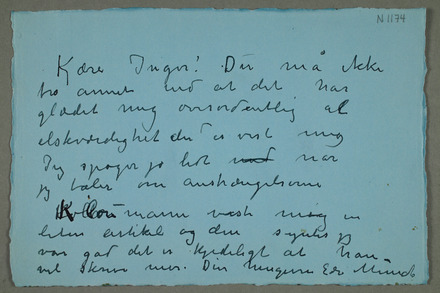 N.1174
Kjære Inger! Du må ikke
tro annet end at det har
glædet mig overordentlig al
elskværdighet du er vist mig
Jeg spøger jo lidt når
jeg taler om anstrængelserne
Kollmann viste mig en
liten artikel og den synes jeg
var god det er kjedeligt at han
vil skrive mer. Din hengivne Edv Munch